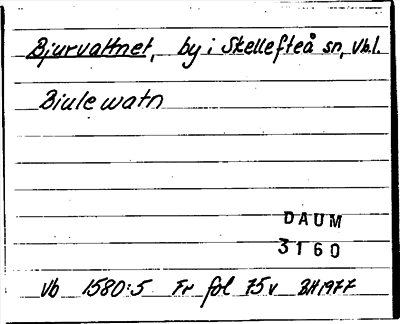 Bjurvattnet, by i Skellefteå sn, Vb.l.
Biule watn
DAUM
3160
Vb 1580:5 Fr fol 75v BH1977